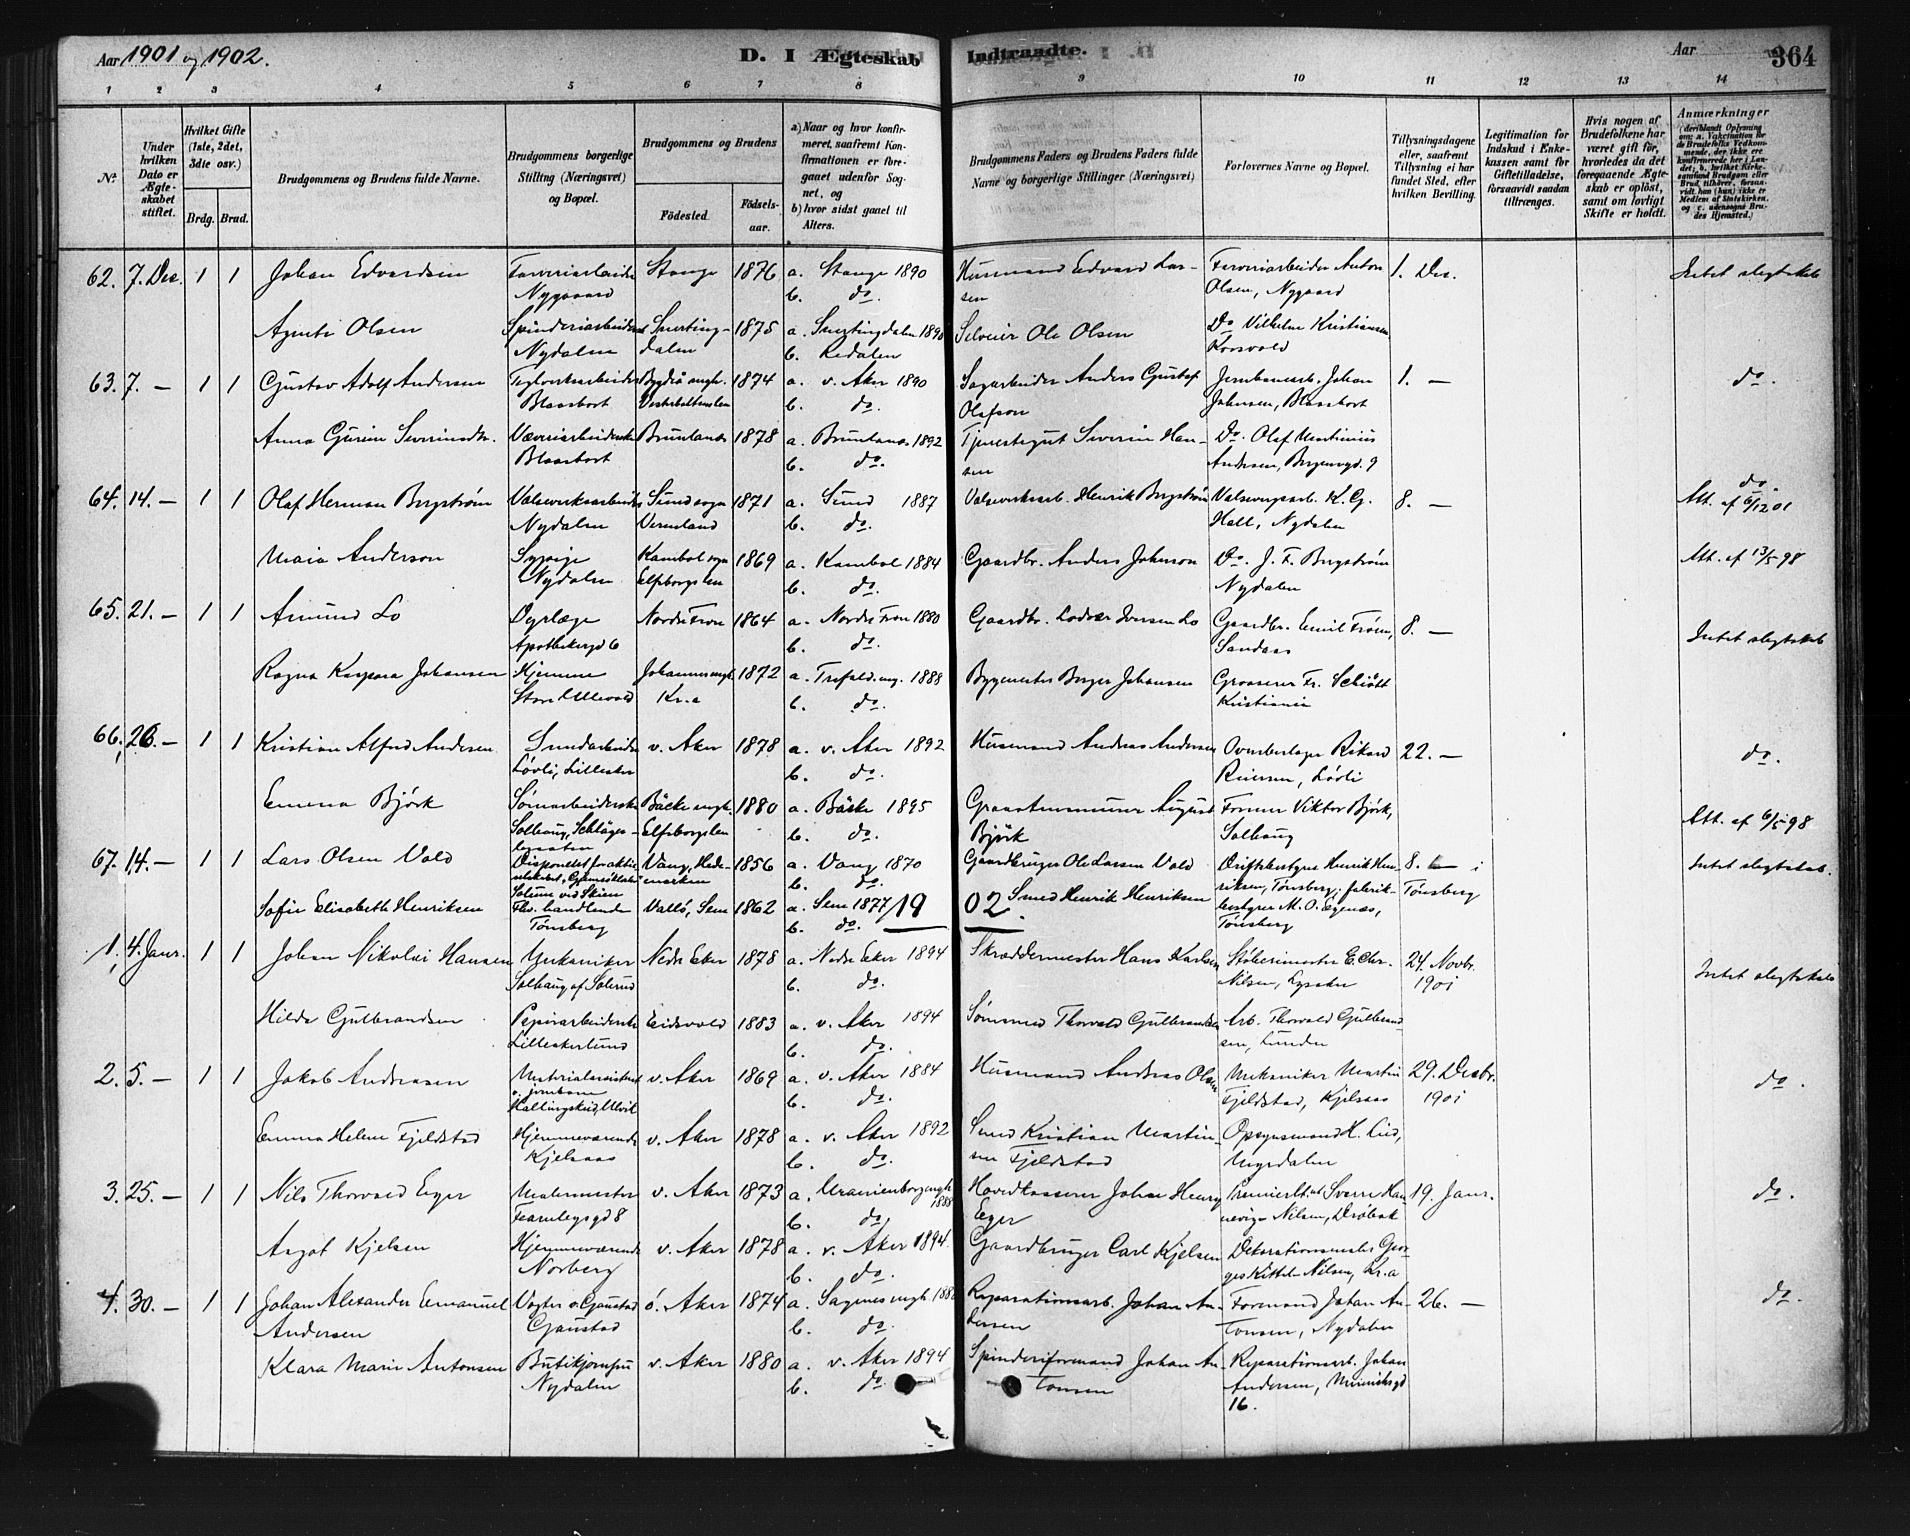 Aar 1901 og 1902.
D. I Ægteskab Indtraadte.
Aar
364
1 2 3 4 5 6 7 8 9 10 11 12 13 14
No.
Under hvilken Dato er Ægteskabet stiftet.
Hvilket Gifte (1ste, 2det, 3die osv.)
Brdg. Brud.
Brudgommens og Brudens fulde Navne.
Brudgommens borgerlige Stilling (Næringsvei) og Bopæl.
Brudgommens og Brudens
Födested. Födsels-aar.
a) Naar og hvor konfirmeret, saafremt Konfirmationen er foregaaet udenfor Sognet, og
b) hvor sidst gaaet til Alters.
Brudgommens Faders og Brudens Faders fulde Navne og borgerlige Stillinger (Næringsvei)
Forlovernes Navne og Bopæl.
Tillysningsdagene eller, saafremt Tillysning ei har fundet Sted, efter hvilken Bevilling.
Legitimation for Indskud i Enkekassen samt for Giftetilladelse, forsaavidt saadan tiltrænges.
Hvis nogen af Brudefolkene har været gift før, hvorledes da det foregaaende Ægteskab er oplöst, samt om lovligt Skifte er holdt.
Anmærkninger
62. 7. Dec. 1 1 Johan Edvardsen Farveriarbeider Nygaard Stange 1876 a. Stange 1890 b. do. Husmand Edvard Larsen Farveriarbeider Anton Olsen, Nygaard 1. Dec. Intet slegtskab
Agnete Olsen Spinderiarbeiderske Nydalen Snertingdalen 1875 a. Snertingdalen 1890 b. Redalen Selveier Ole Olsen Do Vilhelm Kristiansen Korsvold
63. 7. — 1 1 Gustav Adolf Andersen Teglverksarbeider Blaasbort 1874 a. v. Aker 1890 b. do. Sagarbeider Anders Gustaf Olafson Jernbanearb. Johan Johnsen, Blaasbort 1. — do.
Anna Gurine Severinsdtr. Væveriarbeiderske Blaasbort Brunlanæs 1878 a. Brunlanæs 1892 b. do. Tjenestegut Severin Hansen Do. Olaf Martinius Andersen, Bergensgd. 9
64. 14. — 1 1 Olaf Herman Bergström Valseverksarbeider Nydalen Sund sogn Vermland 1871 a. Sund 1887 b. do. Valseverksarb. Henrik Bergström Valseverksarb. K. G. Hall, Nydalen 8. — do. Att. af 6/12 01
Maia Anderson Sypige Nydalen Kambol sogn Elfsborgs len 1869 a. Kambol 1884 b. do. Gaardbr. Anders Johnson Do. J. F. Bergström Nydalen Att. af 13/5 98
65. 21. — 1 1 Amund Lo Dyrlæge Apothekergd 6 Nordre Fron 1864 a. Nordre Fron 1880 b. do. Gaardbr. Lodvar Iversen Lo Gaardbr. Emil Frøen, Sandaas 8. — Intet slegtskab
Ragna Kaspara Johansen Hjemme Store Ullevold Johannes mgh. Kr.a 1872 a. Trefold. mg. 1888 b. do. Bygmester Berger Johansen Grosserer Fr. Schiött Kristiania
66. 26. — 1 1 Kristian Alfred Andersen Lövli, Lilleaker v. Aker 1878 a. v. Aker 1892 b. do. Husmand Andreas Andersen Rikard Reiersen, Lövli 22. — do.
Emma Björk Sömarbeiderske Solhaug, Bäcke Elfsborgslen 1880 a. Bäcke 1895 b. do. August Björk Former Viktor Björk, Solhaug Att. af 6/5 98
67. 14. — 1 1 Lars Olsen Vold Solum ved Skien Vang, Hedemarken 1856 a. Vang 1870 b. do. Gaardbruger Ole Larsen Vold Driftsbestyrer Henrik Henriksen, Tønsberg; 8. — i Tønsberg Intet slegtskab.
Sofie Elisabeth Henriksen handlende Tønsberg Vallö, Sem 1862 a. Sem 1877 b. do. Smed Henrik Henriksen fabrikbestyrer M. O. Egenæs, Tønsberg
1902
1. 4. Janr. 1 1 Johan Nikolai Hansen Mekaniker Solhaug af Sollerud Nedre Eker 1878 a. Nedre Eker 1894 b. do. Skræddermester Hans Karlsen Støberimester E. Chr. Nilsen, Lysaker 24. Novbr. 1901 Intet slegtskab
Hilda Gulbrandsen Papirarbeiderske Lilleakerlund Eidsvold 1883 a. v. Aker 1894 b. do. Sømand Thorvald Gulbrandsen Arb. Thorvald Gulbrandsen, Lunden
2. 5. — 1 1 Jakob Andreasen v. Aker 1869 a. v. Aker 1884 b. do. Husmand Andreas Olsen Mekaniker Martin Fjeldstad, Kjelsaas 29. Decbr. 1901 do.
Emma Helene Fjeldstad Hjemmeværende Kjelsaas v. Aker 1878 a. v. Aker 1892 b. do. Smed Kristian Martinsen Fjeldstad Opsynsmand H. Lied, Mayedalen
3. 25. — 1 1 Nils Thorvald Eger Malermester Fearnleysgd 8 v. Aker 1873 a. Uranienborg mgh. 1888 b. do. Hovedkasserer Johan Henry Eger Premierlt. Sverre Hannevig Nilsen, Drøbak 19. Janr. do.
Aagot Kjelsen Hjemmeværende Norberg v. Aker 1878 a. v. Aker 1894. b. do. Gaardbruger Carl Kjelsen Dekorationsmaler Georges Kittel Nilsen, Kr.a
4. 30. — 1 1 Johan Alexander Emanuel Andersen Vogter v. Gaustad Gaustad ö. Aker 1874 a. Sagenes mgh. 1888 b. do. Reparationsarb. Johan Andersen Formand Johan Antonsen, Nydalen 26. — do.
Klara Marie Antonsen Butikjomfru Nydalen v. Aker 1880 a. v. Aker 1894 b. do. Spinderiformand Johan Antonsen Reparationsarb. Johan Andersen, 16.